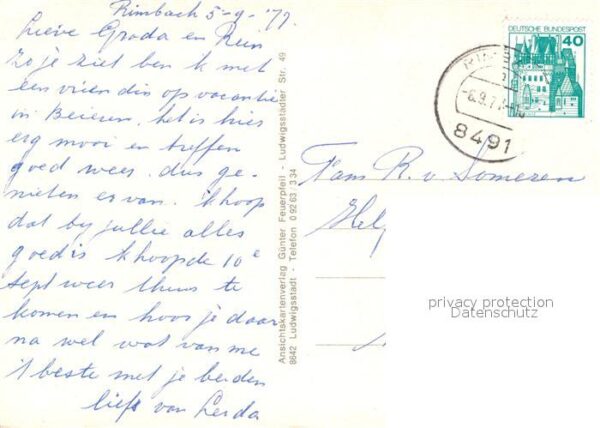 Rimbach 5-9-'77.
Lieve Greda en Rein
Zo je ziet ben k met
een vriendin op vacantie
in Beieren. het is hier
erg mooi en treffen
goed weer. dus ge-
nieten ervan. k hoop
dat by jullie alles
goed is k hoop de 10e
sept weer thuis te
komen en hoor je daar
na wel wat van me
't beste met je beiden
liefs van Gerda
Ansichtskartenverlag Günter Feuerpfeil - Ludwigsstädter Str. 49
8642 Ludwigsstadt · Telefon 0 92 63 / 3 34
DEUTSCHE BUNDESPOST
40
-6.9.77
8491
Fam R. v. Someren
privacy protection
Datenschutz